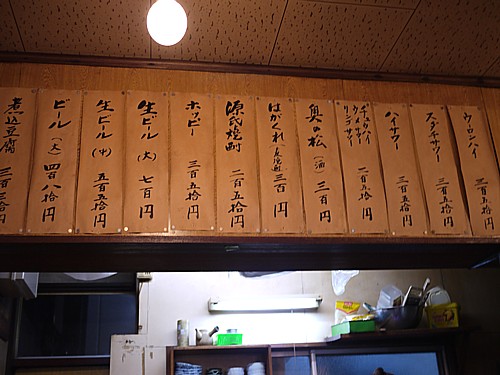 ウーロンハイ 三百五拾円
スダチサワー 三百五拾円
ハイサワー 三百五拾円
チューハイ
ウメサワー
リンゴサワー
二百五拾円
奥の松(酒) 三百円
はがくれ 三百円
源氏焼酎 二百五拾円
ホッピー 三百五拾円
生ビール(大) 七百円
生ビール(中) 五百五拾円
ビール(大) 四百八拾円
煮込豆腐 三百三拾円